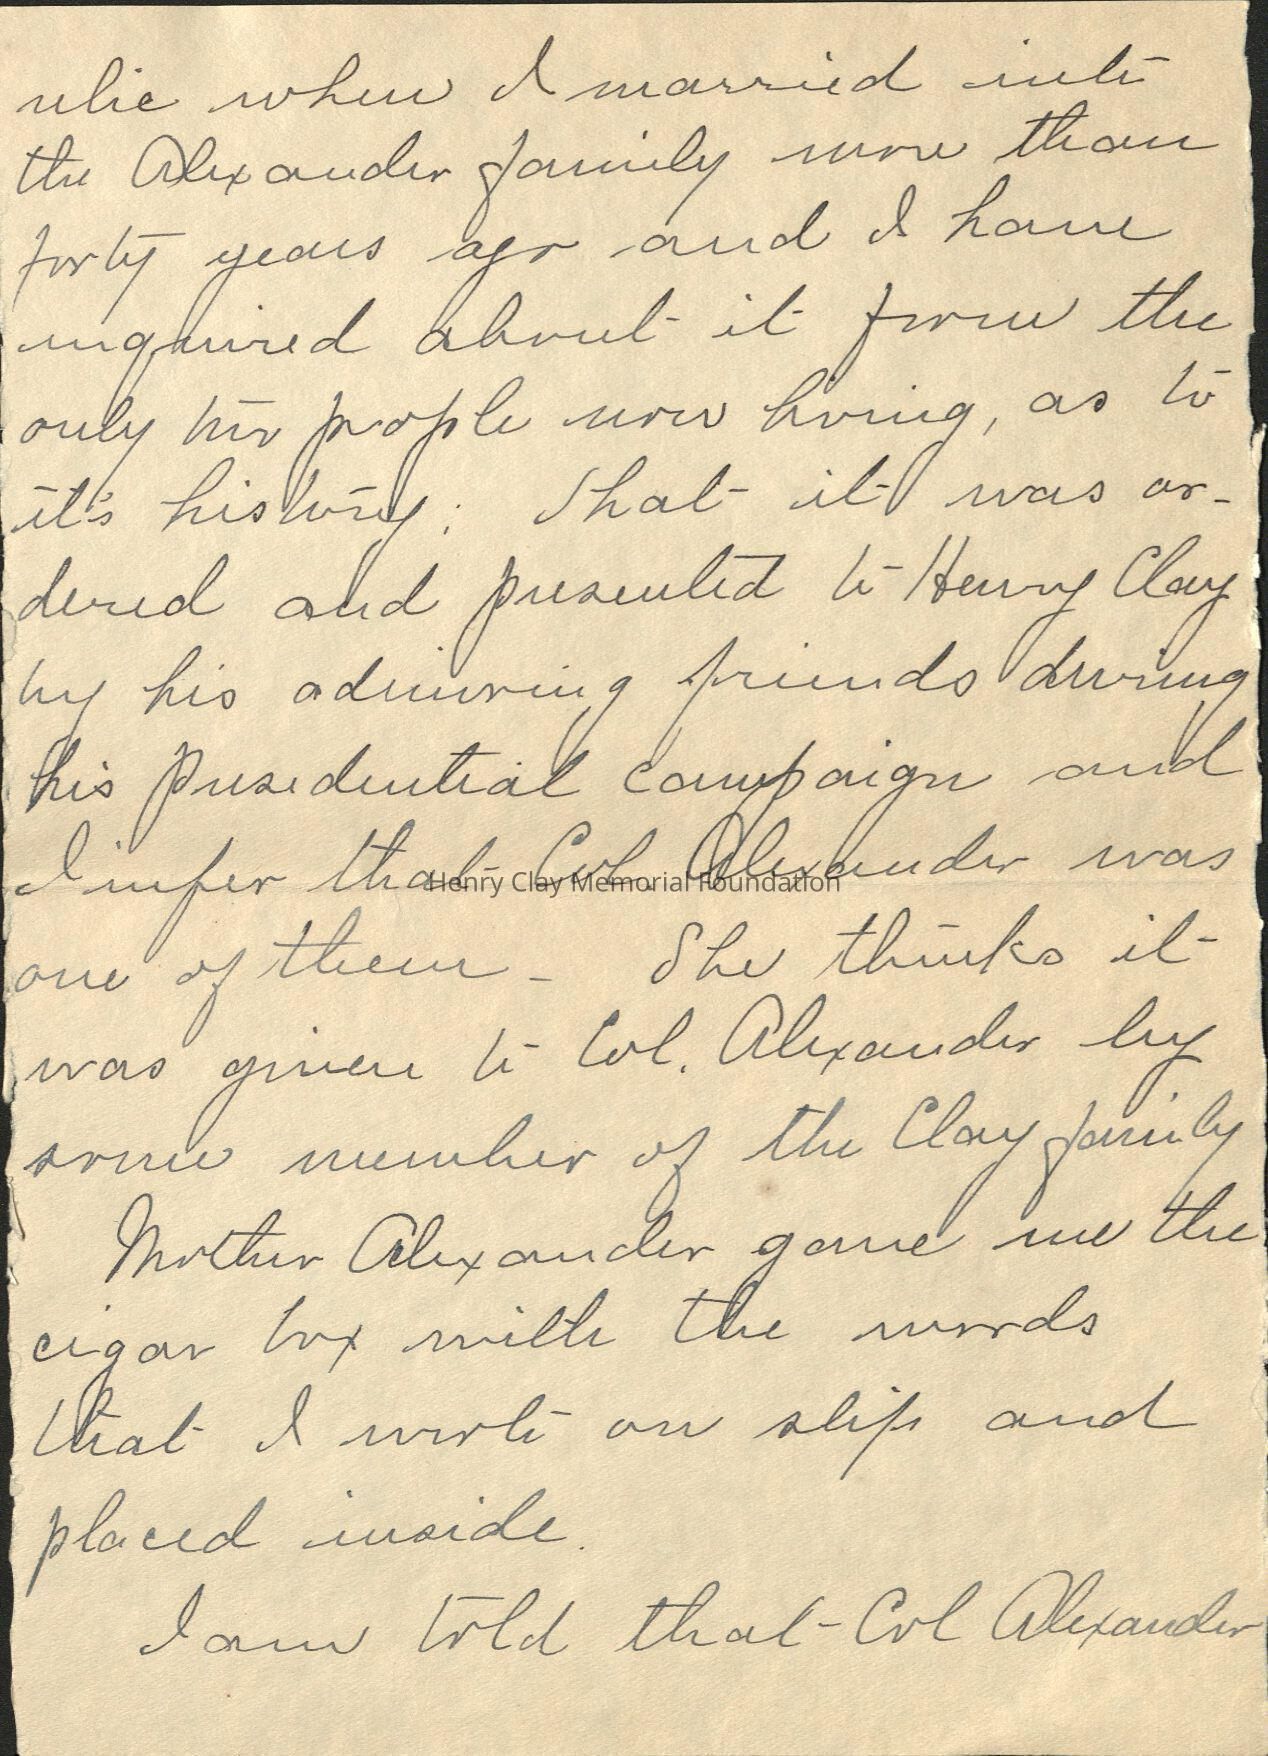 relic when I married into
the Alexander family more than
forty years ago and I have
inquired about it from the
only two people now living, as to
it's history: That it was or-
dered and presented to Henry Clay
by his admiring friends during
his Presedential campaign and
I infer that Col. Alexander was
Henry Clay Memorial Foundation
one of them - She thinks it
was given to Col. Alexander by
some member of the Clay family
Mother Alexander gave me the
cigar box with the words
that I wrote on slip and
placed inside.
I am told that Col Alexander